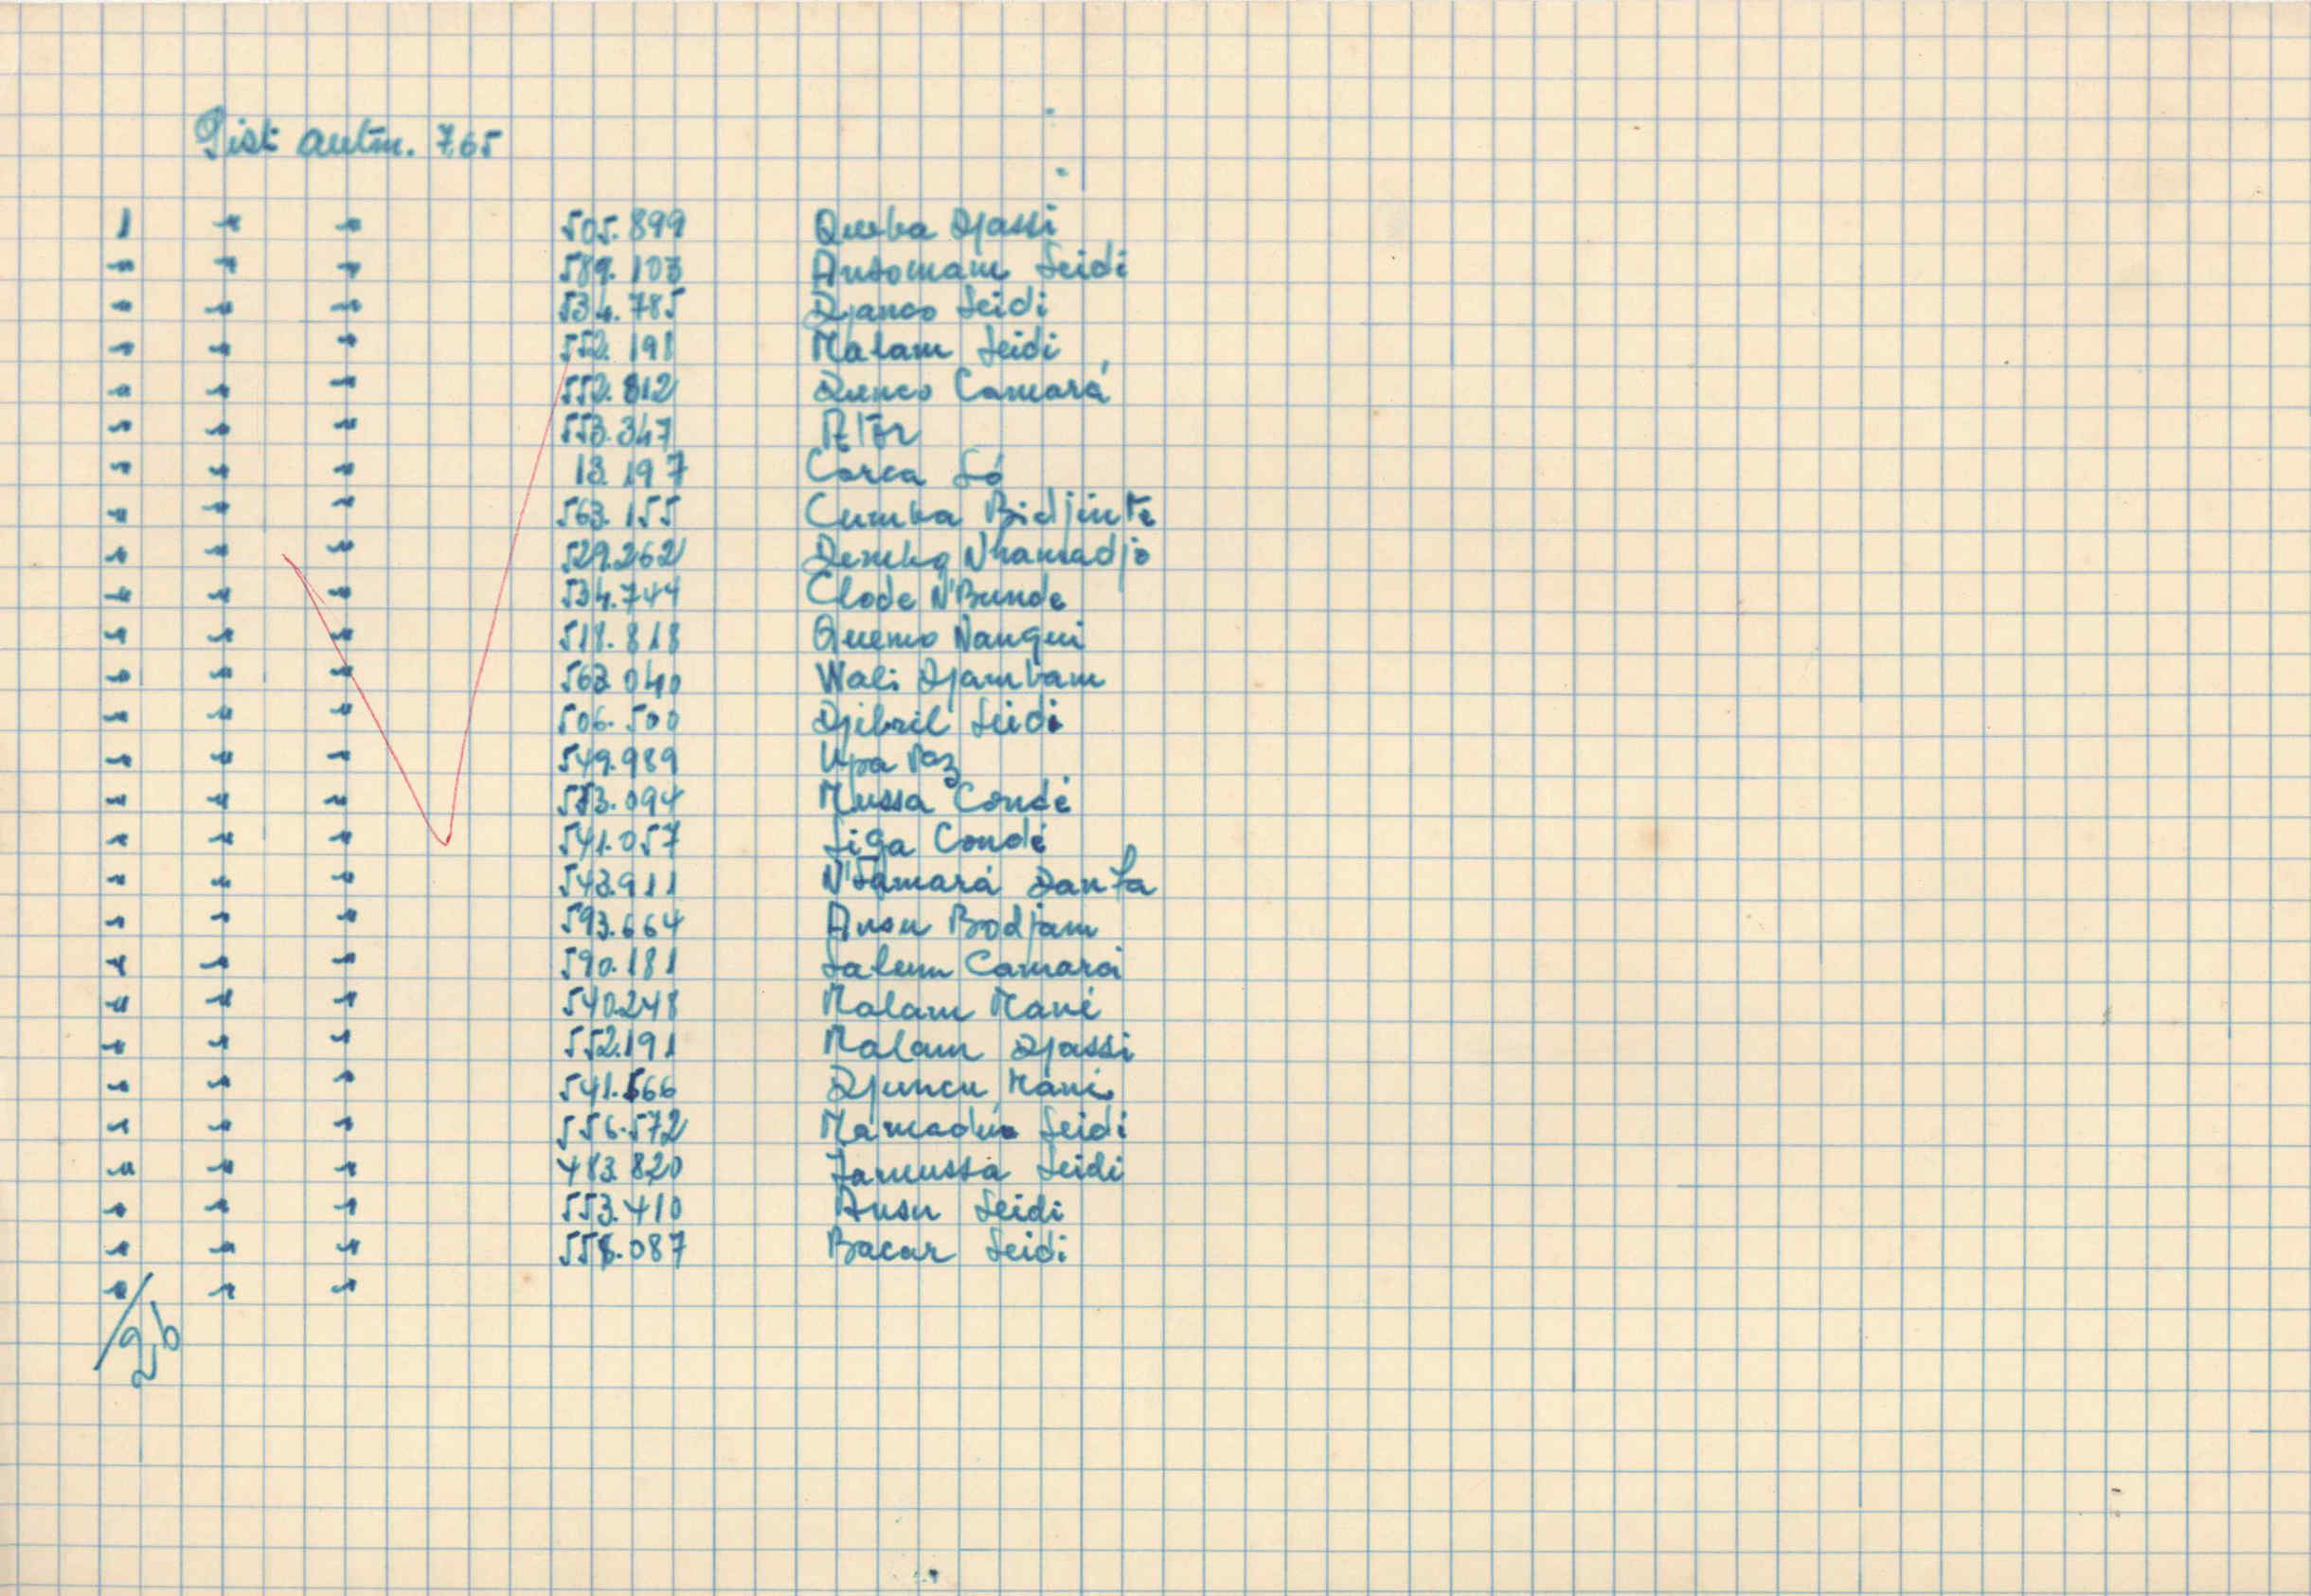 Pist. autm. 7,65
1 " " 505.899 Queba Djassi
" " " 589.103 Ansomam Seidi
" " " 534.785 Djanco Seidi
" " " 552.191 Malam Seidi
" " " 552.812 Quenco Camará
" " " 553.347
" " " 13.197 Corca Só
" " " 563.155 Cumba Bidjinte
" " " 529.262 Demba Nhamadjo
" " " 534.744 Clode N'Bunde
" " " 518.818 Quemo Nanqui
" " " 563.040 Wali Djambam
" " " 506.500 Djibril Seidi
" " " 549.989 Upa Paz
" " " 553.094 Mussa Condé
" " " 541.057 Siga Condé
" " " 543.911 N'Famará Danfa
" " " 593.664 Ansu Bodjam
" " " 590.181 Salum Camará
" " " 540.248 Malam Mané
" " " 552.191 Malam Djassi
" " " 541.566 Djuncu Mané
" " " 556.572 Mamadú Seidi
" " " 483.820 Jamussa Seidi
" " " 553.410 Ansu Seidi
" " " 087 Bacar Seidi
" " "
26